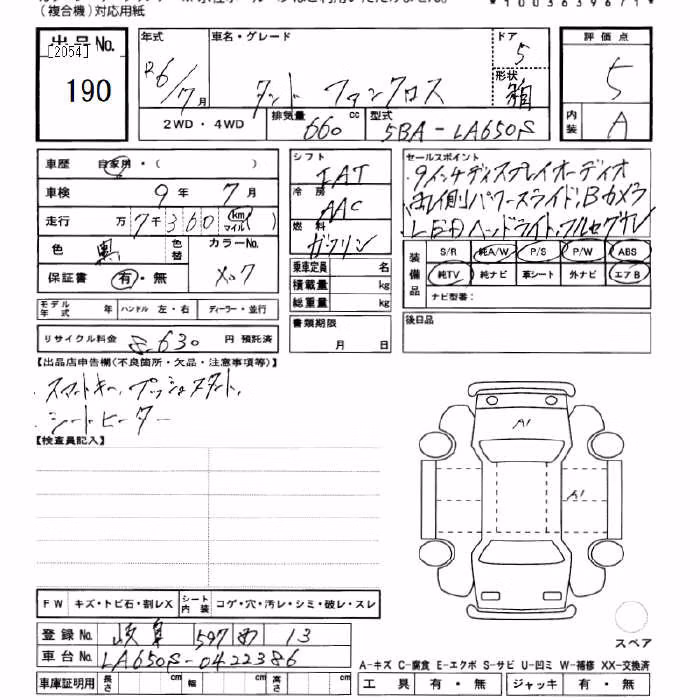 (複合機)対応用紙
*1003639671*
出品No. [2054] 190
年式 R6/7月
車名・グレード タント ファンクロス
ドア 5
形状 箱
2WD・4WD
排気量 660 cc
型式 5BA-LA650S
評価点 5
内装 A
車歴 自家用・( )
車検 9年 7月
走行 万 7千360 (km マイル)
色 黒 色替
カラーNo. X07
保証書 有・無
モデル年式 年 ハンドル 左・右 ディーラー・並行
リサイクル料金 8,630 円 預託済
シフト IAT
冷房 AAC
燃料 ガソリン
乗車定員 名
積載量 kg
総重量 kg
書類期限 月 日
セールスポイント
9インチディスプレイオーディオ
両側パワースライド、Bカメラ
LEDヘッドライト、フルセグTV
装備品 S/R 純A/W P/S P/W ABS
純TV 純ナビ 革シート 外ナビ エアB
ナビ型番:
後日品
【出品店申告欄(不良箇所・欠品・注意事項等)】
スマートキー、プッシュスタート、
シートヒーター
【検査員記入】
A1
A1
FW キズ・トビ石・割レX シート内装 コゲ・穴・汚レ・シミ・破レ・スレ
登録No. 岐阜 597 め 13
車台No. LA650S-0422386
車庫証明用 長さ cm 幅 cm 高さ cm
スペア
A-キズ C-腐食 E-エクボ S-サビ U-凹ミ W-補修 XX-交換済
工具 有・無 ジャッキ 有・無